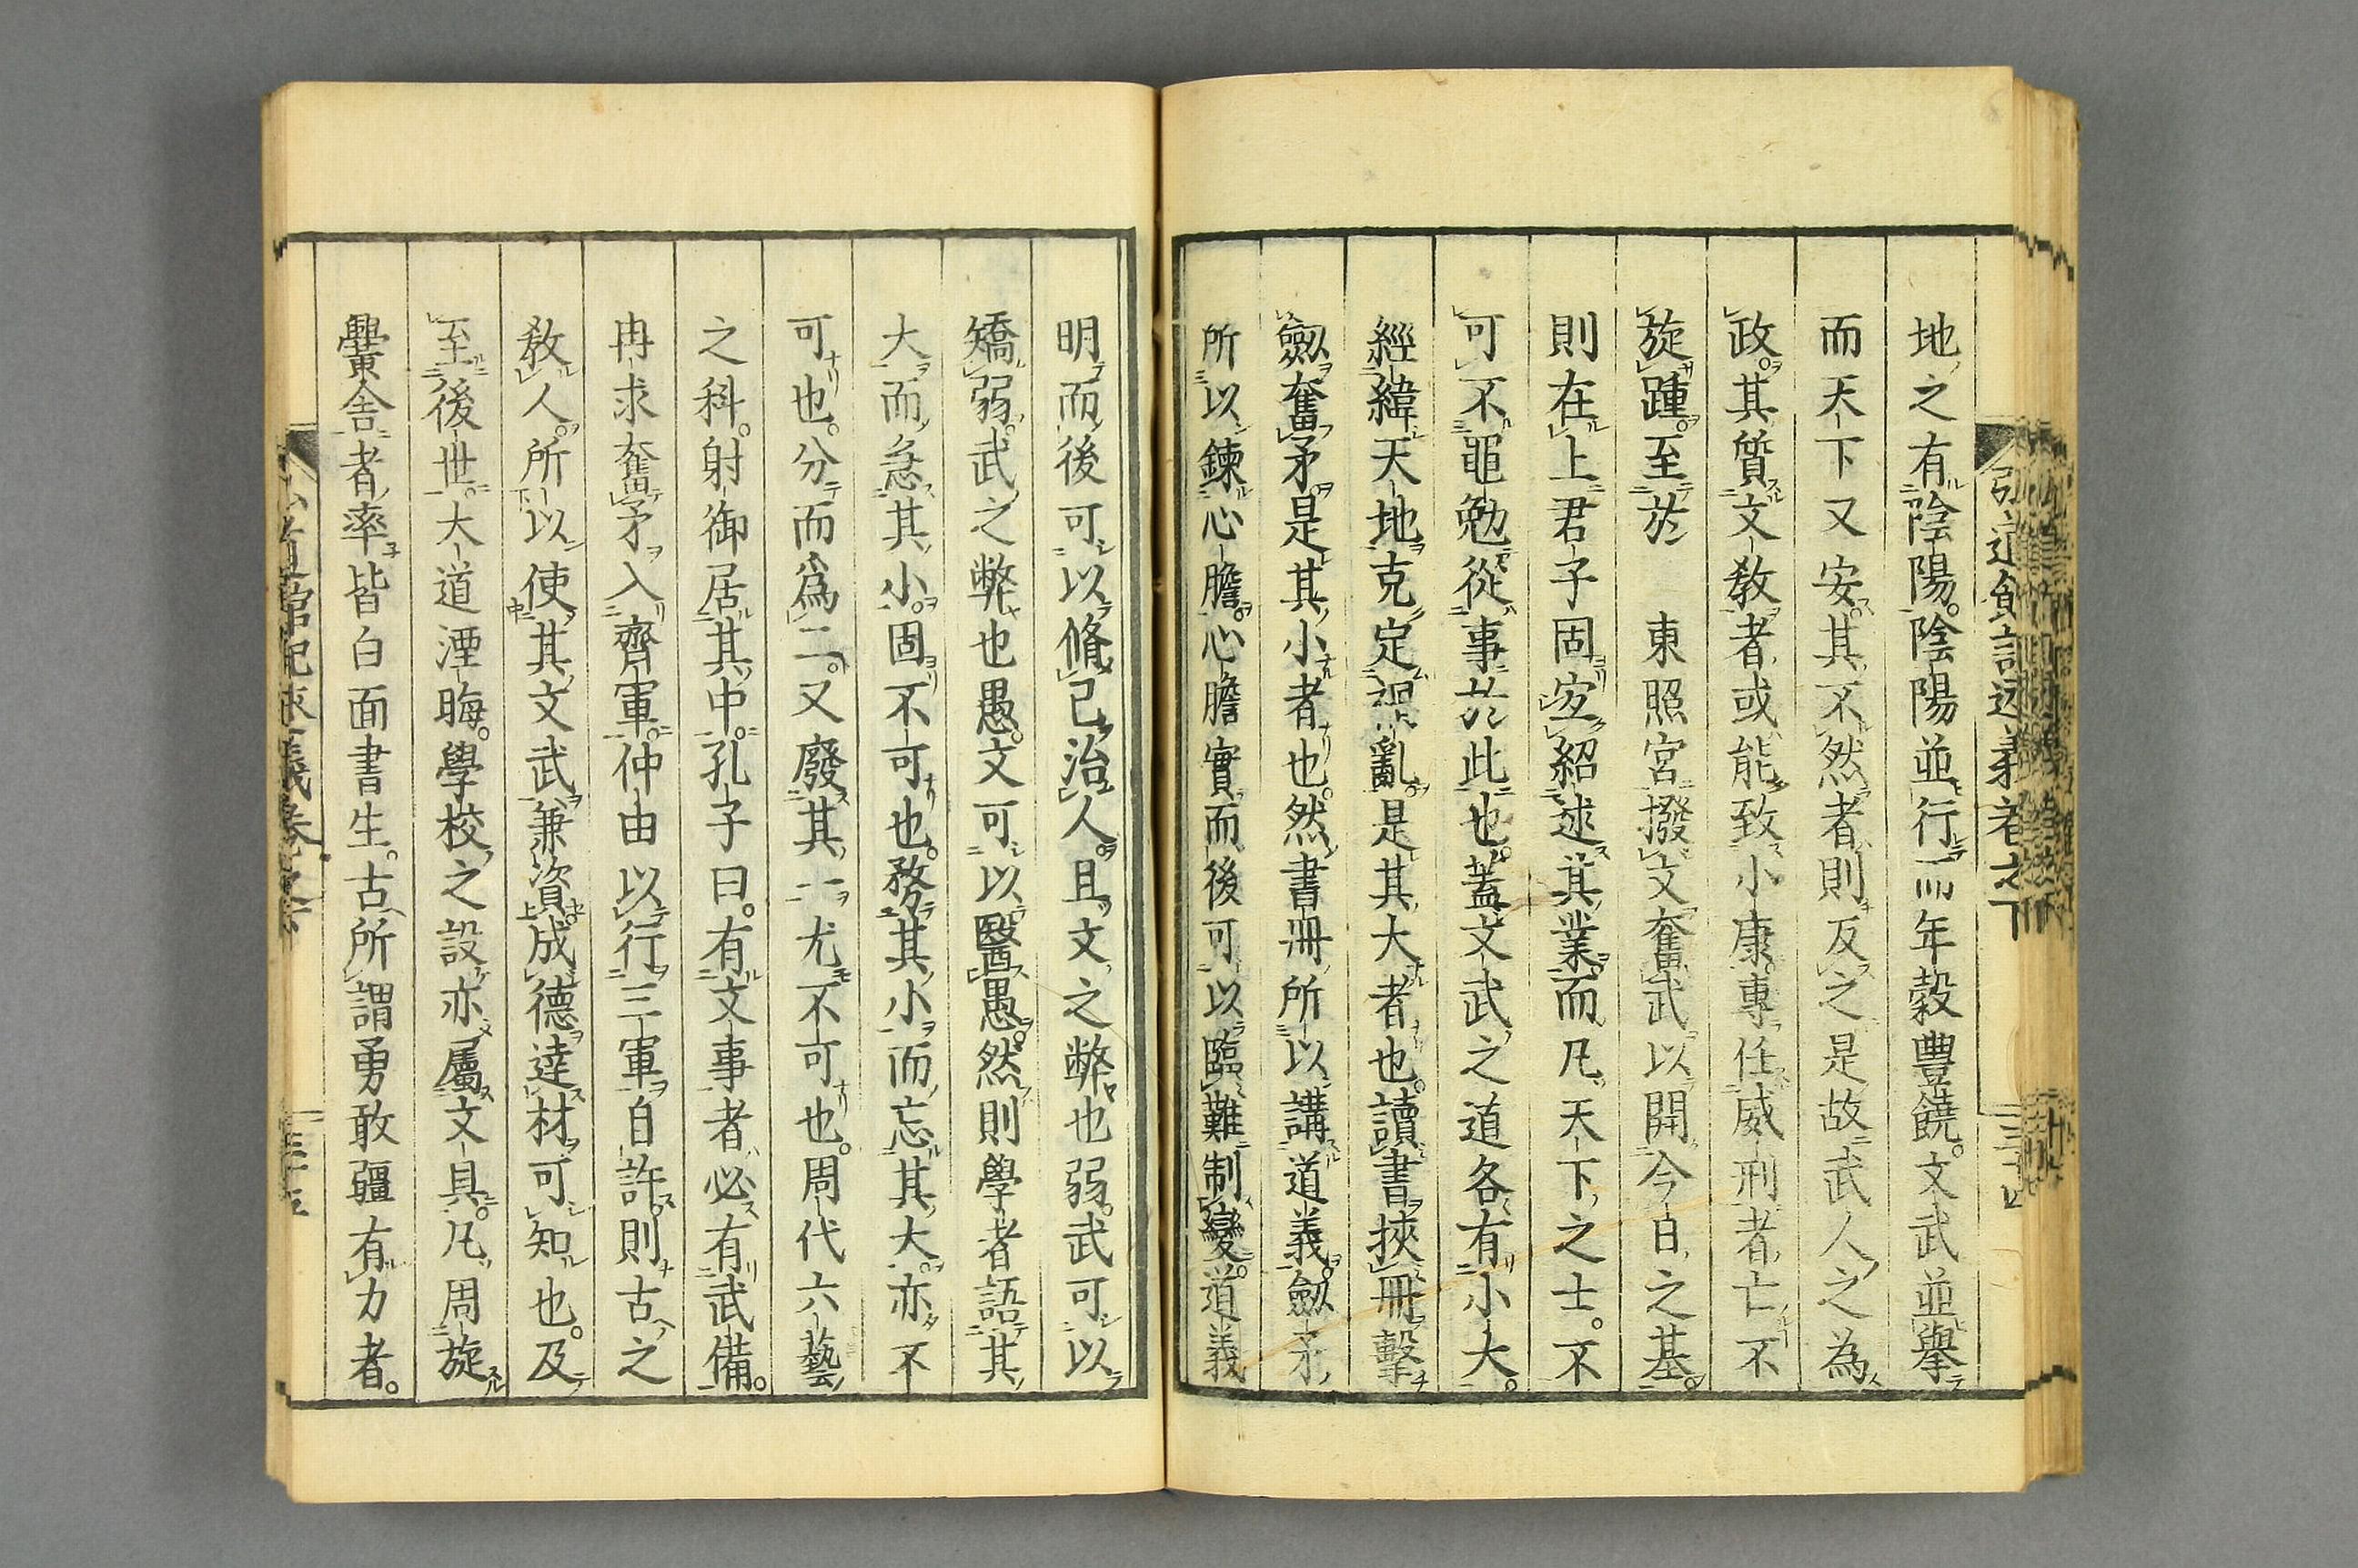 地之有陰陽。陰陽並行而年穀豊饒。文武並擧
而天下又安。其不然者則反之是故武人之為
政。其質文教者或能致小康。專任威刑者亡不
旋踵。至於　東照宮撥文奮武以開今日之基。
則在上君子固宜紹述其業而凡天下之士。不
可不黽勉從事於此也。蓋文武之道各有小大。
經緯天地克定禍亂是其大者也。讀書挾冊擊
劔奮矛。是其小者也。然書冊所以講道義。劔矛
所以鍊心膽。心膽實而後可以臨難制變。道義
明而後可以脩己治人。且文之弊也弱。武可以
矯弱。武之弊也愚。文可以醫愚。然則學者語其
大而急其小。固不可也。務其小而忘其大。亦不
可也。分而爲二。又廢其一尤不可也。周代六藝
之科。射御居其中。孔子曰。有文事者必有武備。
冉求奮矛入齊軍。仲由以行三軍自許。則古之
教人。所以使其文武兼資成德達材可知也。及
至後世。大道湮晦。學校之設亦屬文具。凡周旋
黌舍者率皆白面書生。古所謂勇敢疆有力者。